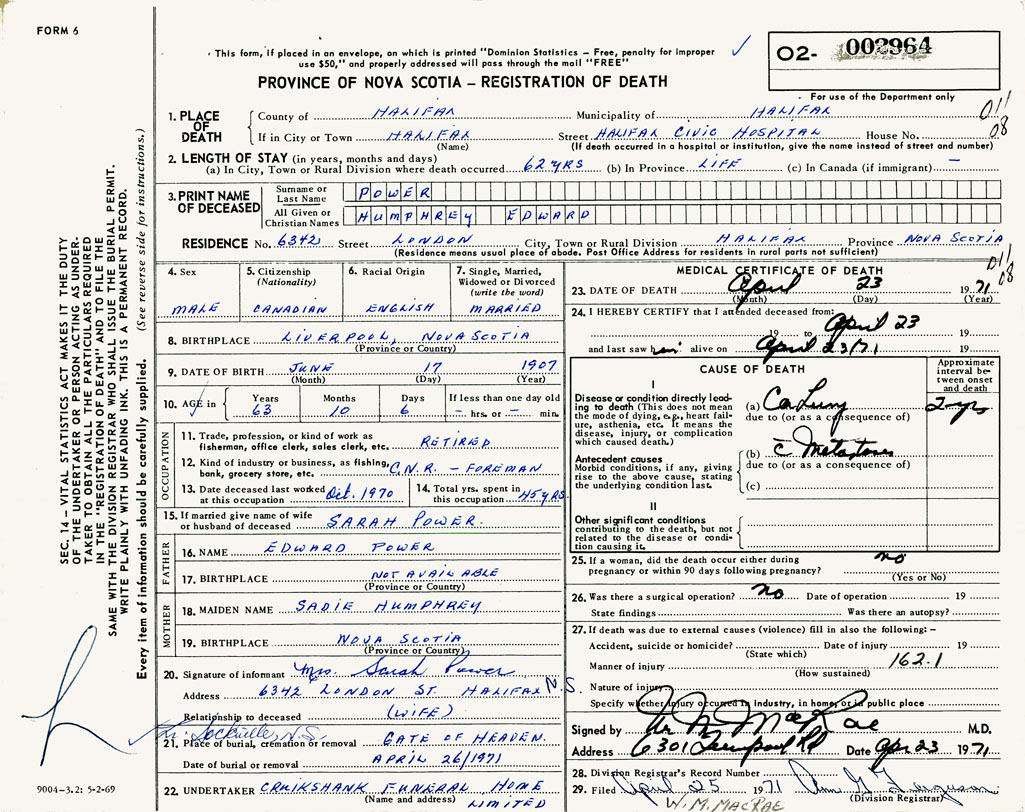 FORM 6
This form, if placed in an envelope, on which is printed "Dominion Statistics – Free, penalty for improper
use $50," and properly addressed will pass through the mail "FREE"
PROVINCE OF NOVA SCOTIA – REGISTRATION OF DEATH
O2- 002964
For use of the Department only
SEC. 14 – VITAL STATISTICS ACT MAKES IT THE DUTY
OF THE UNDERTAKER OR PERSON ACTING AS UNDER-
TAKER TO OBTAIN ALL THE PARTICULARS REQUIRED
IN THE "REGISTRATION OF DEATH" AND TO FILE THE
SAME WITH THE DIVISION REGISTRAR WHO SHALL ISSUE THE BURIAL PERMIT.
WRITE PLAINLY WITH UNFADING INK. THIS IS A PERMANENT RECORD.
Every item of information should be carefully supplied. (See reverse side for instructions.)
1. PLACE OF DEATH
County of HALIFAX Municipality of HALIFAX 011
If in City or Town HALIFAX Street HALIFAX CIVIC HOSPITAL House No. 08
(Name) (If death occurred in a hospital or institution, give the name instead of street and number)
2. LENGTH OF STAY (in years, months and days)
(a) In City, Town or Rural Division where death occurred 62 YRS (b) In Province LIFE (c) In Canada (if immigrant) –
3. PRINT NAME OF DECEASED
Surname or Last Name POWER
All Given or Christian Names HUMPHREY EDWARD
RESIDENCE No. 6342 Street LONDON City, Town or Rural Division HALIFAX Province NOVA SCOTIA
(Residence means usual place of abode. Post Office Address for residents in rural parts not sufficient)
011
08
4. Sex MALE
5. Citizenship (Nationality) CANADIAN
6. Racial Origin ENGLISH
7. Single, Married, Widowed or Divorced (write the word) MARRIED
8. BIRTHPLACE LIVERPOOL, NOVA SCOTIA
(Province or Country)
9. DATE OF BIRTH JUNE 17 1907
(Month) (Day) (Year)
10. AGE in Years 63 Months 10 Days 6 If less than one day old – hrs. or – min.
OCCUPATION
11. Trade, profession, or kind of work as fisherman, office clerk, sales clerk, etc. RETIRED
12. Kind of industry or business, as fishing, bank, grocery store, etc. C.N.R. – FOREMAN
13. Date deceased last worked at this occupation Oct. 1970
14. Total yrs. spent in this occupation 45 YRS
15. If married give name of wife or husband of deceased SARAH POWER.
FATHER
16. NAME EDWARD POWER
17. BIRTHPLACE NOT AVAILABLE
(Province or Country)
MOTHER
18. MAIDEN NAME SADIE HUMPHREY
19. BIRTHPLACE NOVA SCOTIA
(Province or Country)
20. Signature of informant Mrs. Sarah Power
Address 6342 LONDON ST. HALIFAX N.S.
Relationship to deceased (WIFE)
Lr. Sackville, N.S.
21. Place of burial, cremation or removal GATE OF HEAVEN.
Date of burial or removal APRIL 26/1971
22. UNDERTAKER CRUIKSHANK FUNERAL HOME
(Name and address) LIMITED
9004-3.2: 5-2-69
MEDICAL CERTIFICATE OF DEATH
23. DATE OF DEATH April 23 1971
(Month) (Day) (Year)
24. I HEREBY CERTIFY that I attended deceased from:
19 to April 23 19
and last saw him alive on April 23/71 19
CAUSE OF DEATH
Approximate interval between onset and death
I
Disease or condition directly leading to death (This does not mean the mode of dying, e.g., heart failure, asthenia, etc. It means the disease, injury, or complication which caused death.)
(a) Ca Lung 2 yr
due to (or as a consequence of)
Antecedent causes
Morbid conditions, if any, giving rise to the above cause, stating the underlying condition last.
(b) c̄ Metastases
due to (or as a consequence of)
(c)
II
Other significant conditions
contributing to the death, but not related to the disease or condition causing it.
25. If a woman, did the death occur either during pregnancy or within 90 days following pregnancy? no
(Yes or No)
26. Was there a surgical operation? no Date of operation 19
State findings Was there an autopsy?
27. If death was due to external causes (violence) fill in also the following: –
Accident, suicide or homicide? Date of injury 19
(State which)
Manner of injury 162.1
(How sustained)
Nature of injury
Specify whether injury occurred in industry, in home, or in public place
Signed by W M MacRae M.D.
Address 6301 Liverpool Rd Date Apr 23 1971
28. Division Registrar's Record Number
29. Filed April 25 1971
(Division Registrar)
W. M. MACRAE